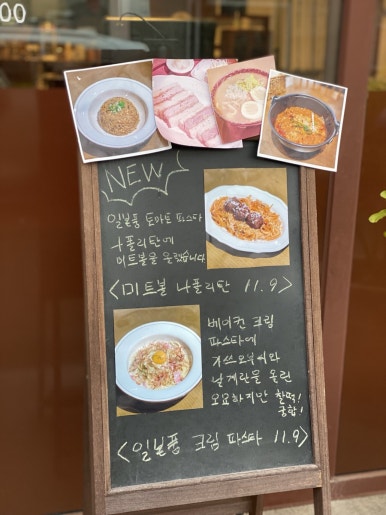 00
NEW
일본풍 토마토 파스타
나폴리탄에
미트볼을 올렸습니다.
<미트볼 나폴리탄 11.9>
베이컨 크림
파스타에
가쓰오부시와
날계란을 올린
오묘하지만 찰떡!
궁합!
<일본풍 크림 파스타 11.9>